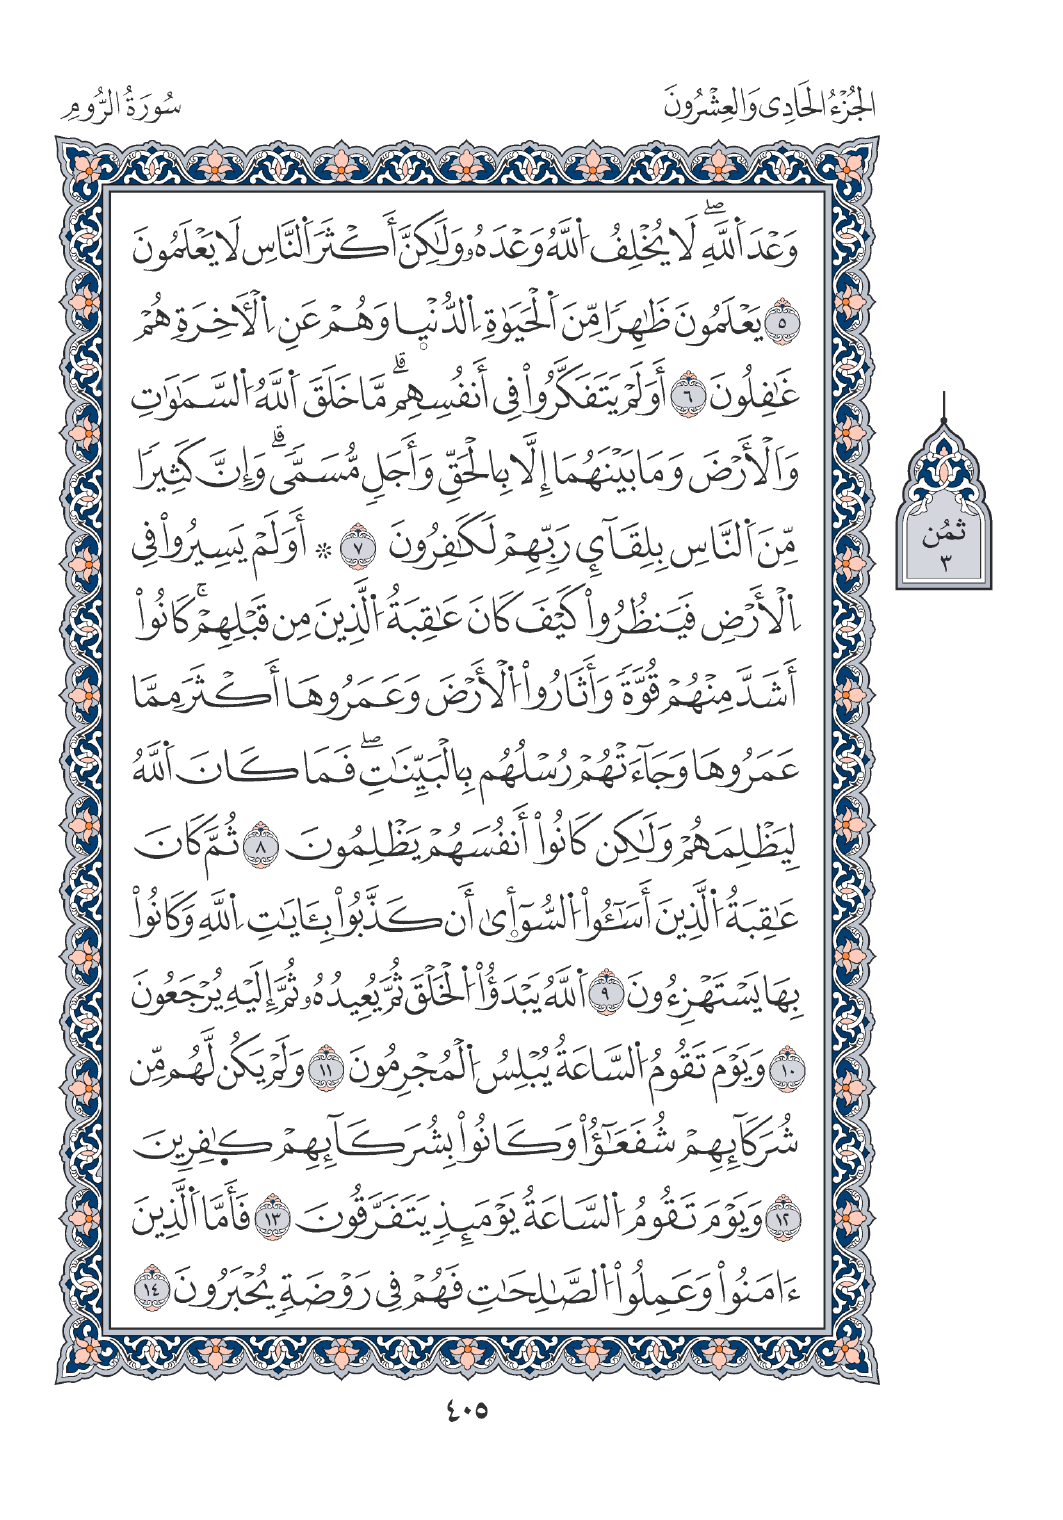 الجُزْءُ الحَادِى وَالعِشْرُونَ
سُورَةُ الرُّومِ
وَعْدَ اَ۬للَّهِۖ لَا يُخْلِفُ اُ۬للَّهُ وَعْدَهُۥ وَلَٰكِنَّ أَكْثَرَ اَ۬لنَّاسِ لَا يَعْلَمُونَ
٥ يَعْلَمُونَ ظَٰهِرًا مِّنَ اَ۬لْحَيَوٰةِ اِ۬لدُّنْي۪ا وَهُمْ عَنِ اِ۬لْأٓخِرَةِ هُمْ
غَٰفِلُونَ ٦ أَوَلَمْ يَتَفَكَّرُواْ فِى أَنفُسِهِمۗ مَّا خَلَقَ اَ۬للَّهُ اُ۬لسَّمَٰوَٰتِ
وَالْأَرْضَ وَمَا بَيْنَهُمَا إِلَّا بِالْحَقِّ وَأَجَلٍ مُّسَمًّىۗ وَإِنَّ كَثِيرًا
مِّنَ اَ۬لنَّاسِ بِلِقَآئِ رَبِّهِمْ لَكَٰفِرُونَ ٧ ۞ أَوَلَمْ يَسِيرُواْ فِى
اِ۬لْأَرْضِ فَيَنظُرُواْ كَيْفَ كَانَ عَٰقِبَةُ اُ۬لَّذِينَ مِن قَبْلِهِمْۚ كَانُواْ
أَشَدَّ مِنْهُمْ قُوَّةً وَأَثَارُواْ اُ۬لْأَرْضَ وَعَمَرُوهَا أَكْثَرَ مِمَّا
عَمَرُوهَا وَجَآءَتْهُمْ رُسْلُهُم بِالْبَيِّنَٰتِۖ فَمَا كَانَ اَ۬للَّهُ
لِيَظْلِمَهُمْ وَلَٰكِن كَانُواْ أَنفُسَهُمْ يَظْلِمُونَ ٨ ثُمَّ كَانَ
عَٰقِبَةُ اُ۬لَّذِينَ أَسَٰٓـُٔواْ اُ۬لسُّوٓأ۪ىٰ أَن كَذَّبُواْ بِـَٔايَٰتِ اِ۬للَّهِ وَكَانُواْ
بِهَا يَسْتَهْزِءُونَ ٩ اَ۬للَّهُ يَبْدَؤُاْ اُ۬لْخَلْقَ ثُمَّ يُعِيدُهُۥ ثُمَّ إِلَيْهِ يُرْجَعُونَ
١٠ وَيَوْمَ تَقُومُ اُ۬لسَّاعَةُ يُبْلِسُ اُ۬لْمُجْرِمُونَ ١١ وَلَمْ يَكُن لَّهُم مِّن
شُرَكَآئِهِمْ شُفَعَٰٓؤُاْ وَكَانُواْ بِشُرَكَآئِهِمْ كٰ۪فِرِينَ
١٢ وَيَوْمَ تَقُومُ اُ۬لسَّاعَةُ يَوْمَئِذٍ يَتَفَرَّقُونَ ١٣ فَأَمَّا اَ۬لَّذِينَ
ءَامَنُواْ وَعَمِلُواْ اُ۬لصَّٰلِحَٰتِ فَهُمْ فِى رَوْضَةٍ يُحْبَرُونَ ١٤
ثُمُن
٣
٤٠٥